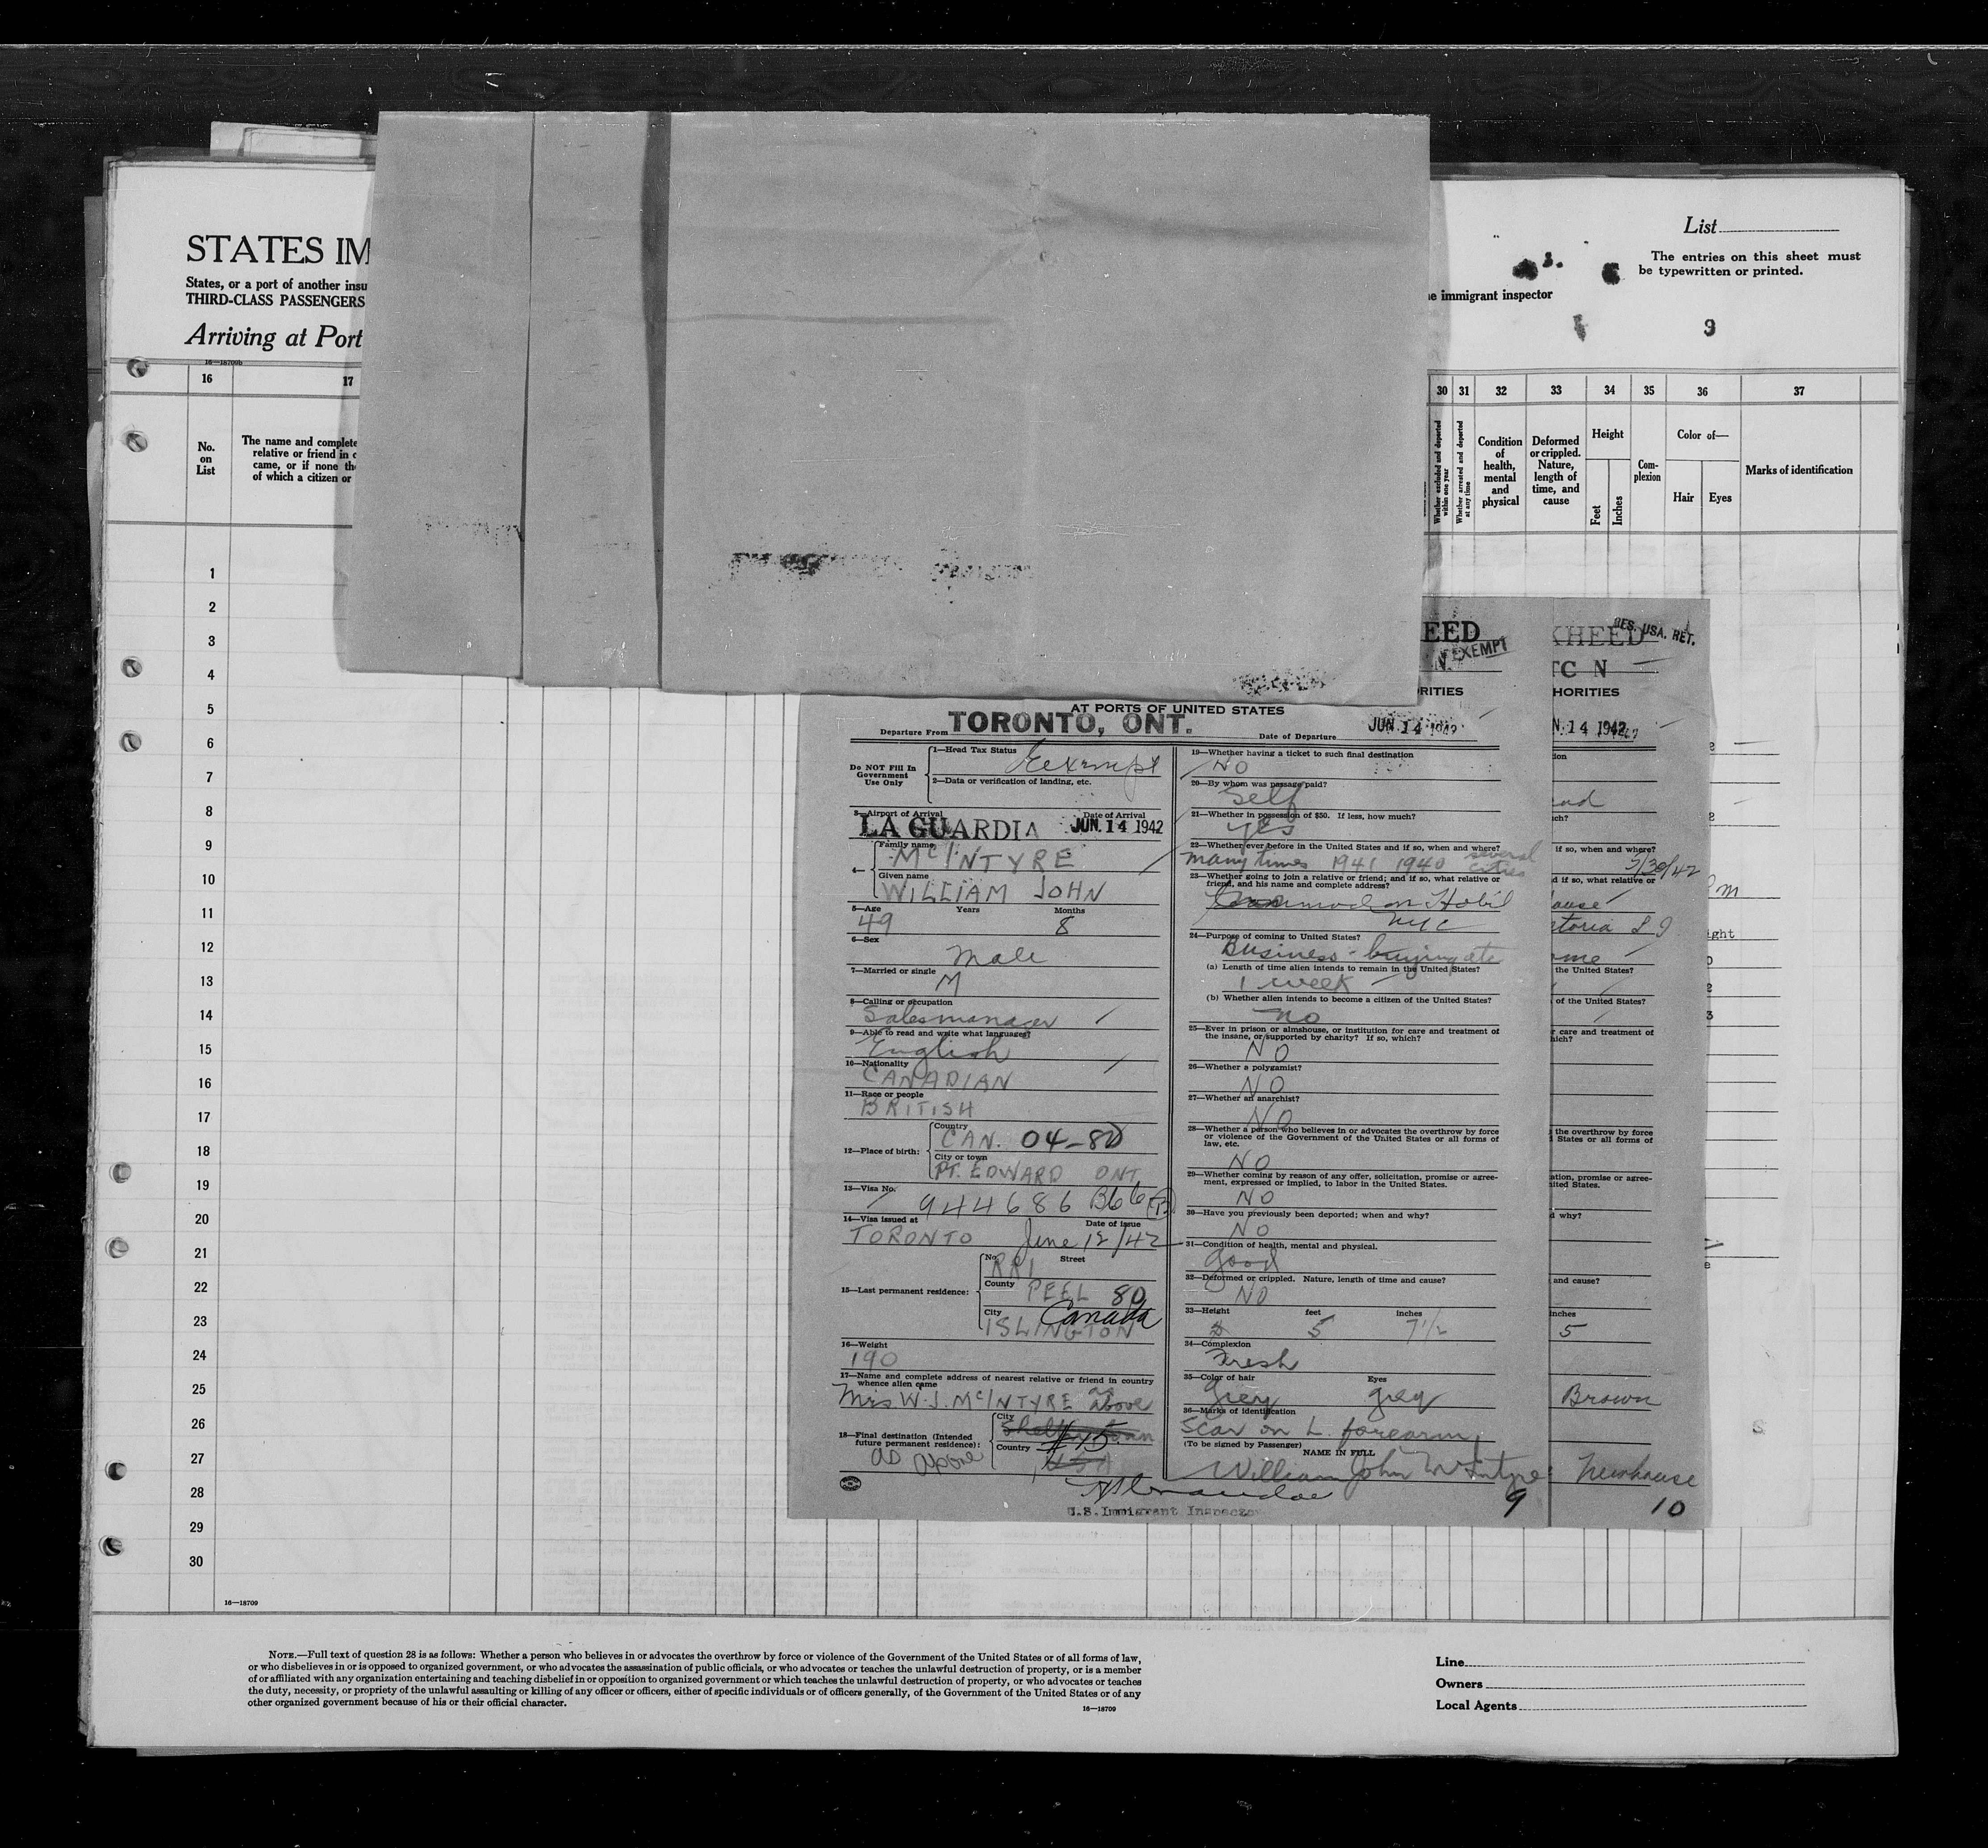 STATES IM
States, or a port of another insu
THIRD-CLASS PASSENGERS
Arriving at Port
16—18709b
List
The entries on this sheet must
be typewritten or printed.
e immigrant inspector
9
16
17
No.
on
List
The name and complete
relative or friend in c
came, or if none the
of which a citizen or
30 31 32 33 34 35 36 37
Whether excluded and deported within one year
Whether arrested and deported at any time
Condition of health, mental and physical
Deformed or crippled. Nature, length of time, and cause
Height
Feet
Inches
Complexion
Color of—
Hair
Eyes
Marks of identification
1
2
3
4
5
6
7
8
9
10
11
12
13
14
15
16
17
18
19
20
21
22
23
24
25
26
27
28
29
30
16—18709
EED
EXEMPT
N.
RITIES
AT PORTS OF UNITED STATES
Departure From TORONTO, ONT.
Date of Departure JUN. 14 1942
Do NOT Fill In
Government
Use Only
1—Head Tax Status
Exempt
2—Data or verification of landing, etc.
3—Airport of Arrival Date of Arrival
LA GUARDIA JUN. 14 1942
4—
Family name
McINTYRE
Given name
WILLIAM JOHN
5—Age Years Months
49 8
6—Sex
Male
7—Married or single
M
8—Calling or occupation
Salesmanager
9—Able to read and write what languages?
English
10—Nationality
CANADIAN
11—Race or people
BRITISH
12—Place of birth:
Country
CAN. 04-80
City or town
PT. EDWARD ONT
13—Visa No.
944686 B66
14—Visa issued at Date of issue
TORONTO June 12/42
15—Last permanent residence:
No. Street
RR1
County
PEEL 80
City Canada
ISLINGTON
16—Weight
190
17—Name and complete address of nearest relative or friend in country
whence alien came
Mrs W. J. McINTYRE as above
18—Final destination (Intended
future permanent residence):
as above
City
Country
#15
USA
U.S. Immigrant Inspector
19—Whether having a ticket to such final destination
NO
20—By whom was passage paid?
Self
21—Whether in possession of $50. If less, how much?
yes
22—Whether ever before in the United States and if so, when and where?
many times 1941 1940 several cities
23—Whether going to join a relative or friend; and if so, what relative or
friend, and his name and complete address?
NYC
24—Purpose of coming to United States?
Business - buying etc
(a) Length of time alien intends to remain in the United States?
1 week
(b) Whether alien intends to become a citizen of the United States?
no
25—Ever in prison or almshouse, or institution for care and treatment of
the insane, or supported by charity? If so, which?
NO
26—Whether a polygamist?
NO
27—Whether an anarchist?
NO
28—Whether a person who believes in or advocates the overthrow by force
or violence of the Government of the United States or all forms of
law, etc.
NO
29—Whether coming by reason of any offer, solicitation, promise or agree-
ment, expressed or implied, to labor in the United States.
NO
30—Have you previously been deported; when and why?
NO
31—Condition of health, mental and physical.
good
32—Deformed or crippled. Nature, length of time and cause?
NO
33—Height feet inches
5 7½
34—Complexion
Fresh
35—Color of hair Eyes
Grey grey
36—Marks of identification
Scar on L. forearm
(To be signed by Passenger)
NAME IN FULL
William John McIntyre
9
RES. USA. RET.
KHEED
N
HORITIES
N. 14 1942
tion
ich?
if so, when and where?
7/30/42
d if so, what relative or
toria L I
the United States?
of the United States?
r care and treatment of
hich?
the overthrow by force
d States or all forms of
ation, promise or agree-
ited States.
d why?
and cause?
inches
5
Brown
Newhouse
10
ight
NOTE.—Full text of question 28 is as follows: Whether a person who believes in or advocates the overthrow by force or violence of the Government of the United States or of all forms of law,
or who disbelieves in or is opposed to organized government, or who advocates the assassination of public officials, or who advocates or teaches the unlawful destruction of property, or is a member
of or affiliated with any organization entertaining and teaching disbelief in or opposition to organized government or which teaches the unlawful destruction of property, or who advocates or teaches
the duty, necessity, or propriety of the unlawful assaulting or killing of any officer or officers, either of specific individuals or of officers generally, of the Government of the United States or of any
other organized government because of his or their official character.
16—18709
Line
Owners
Local Agents